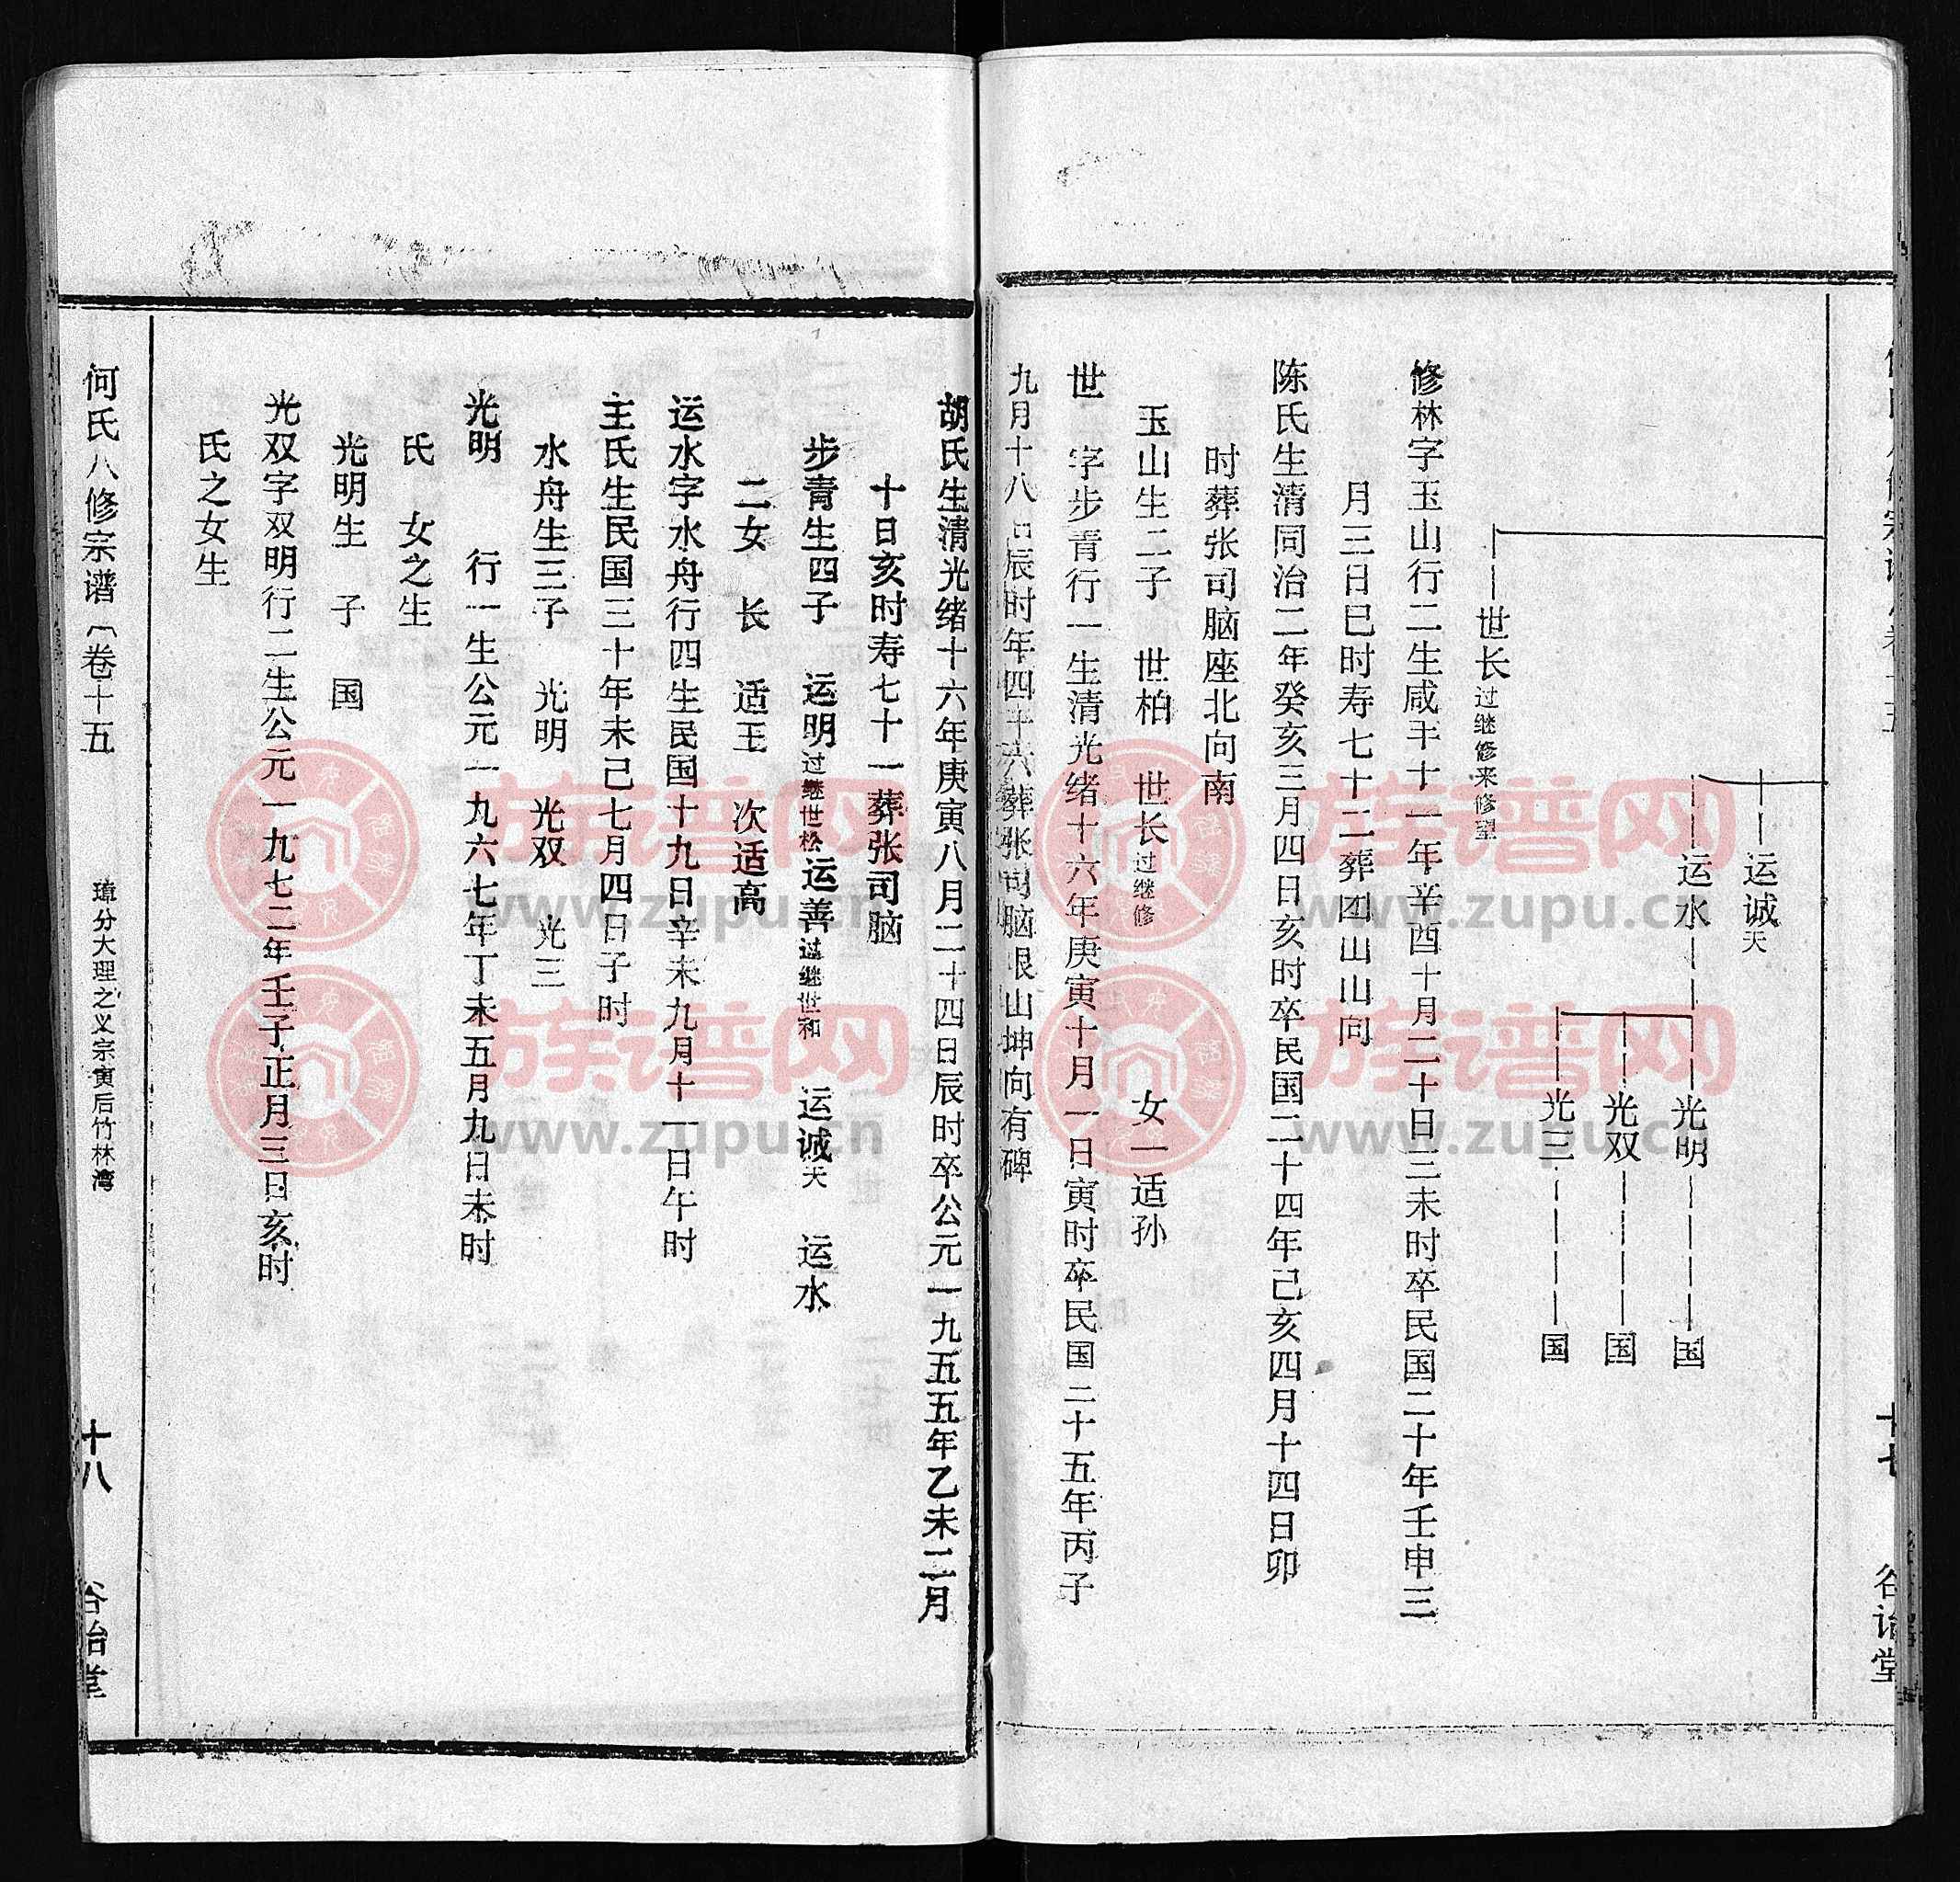 十七
谷诒堂
运诚夭
运水
光明 国
光双 国
光三 国
世长过继修来修望
修林字玉山行二生咸丰十一年辛酉十月二十日三未时卒民国二十年壬申三
月三日巳时寿七十二葬团山山向
陈氏生清同治二年癸亥三月四日亥时卒民国二十四年己亥四月十四日卯
时葬张司脑座北向南
玉山生二子 世柏 世长过继修 女一适孙
世 字步青行一生清光绪十六年庚寅十月一日寅时卒民国二十五年丙子
九月十八日辰时年四十六葬张司脑艮山坤向有碑
胡氏生清光绪十六年庚寅八月二十四日辰时卒公元一九五五年乙未二月
十日亥时寿七十一葬张司脑
步青生四子 运明过继世松 运善过继世和 运诚夭 运水
二女 长 适王 次适高
运水字水舟行四生民国十九日辛未九月十一日午时
王氏生民国三十年未己七月四日子时
水舟生三子 光明 光双 光三
光明 行一生公元一九六七年丁未五月九日未时
氏 女之生
光明生 子 国
光双字双明行二生公元一九七二年壬子正月三日亥时
氏之女生
何氏八修宗谱〔卷十五
璋分大理之义宗寅后竹林湾
十八
谷诒堂
族谱网
www.zupu.cn
族谱网
www.zupu.cn
族谱网
www.zupu.cn
族谱网
www.zupu.cn